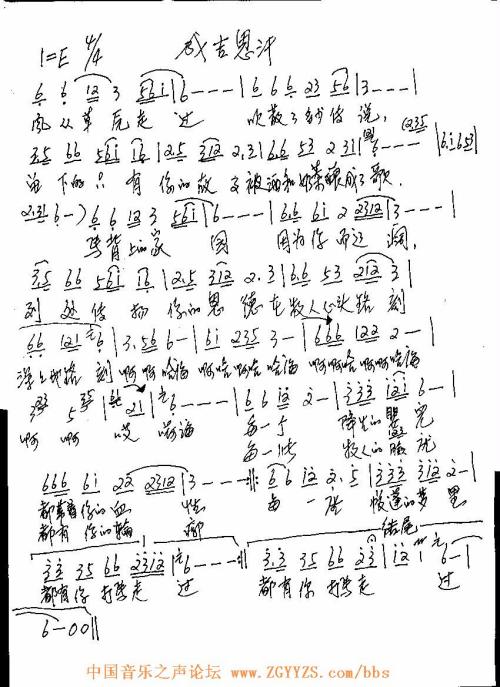 1=E 4/4 成吉思汗
6 6 12 3 561 | 6 - - - | 6 6 6 23 56 | 3 - - - |
风从草原走过 吹散了 传说,
35 66 561 16 | 2.5 312 2.3 | 66 53 2 31
留下的只有你的故 被酒和奶茶酿成了歌.
2.31 6 -) 6 6 12 3 561 | 6 - - - | 66 61 2 2312 | 3 - - - |
马背上的家园 因为你而辽阔,
35 66 561 16 | 2.5 312 2.3 | 6.6 53 212 3 |
到处传扬你的恩德在牧人心头铭刻
66 121 6 | 3.56 6 - | 61 235 3 - | 666 122 2 - |
深深地铭刻 啊啊哈 啊哈啊哈 啊啊哈啊啊哈
21 | 6 - - - | 6 6 12 2 - | 333 121 6 - |
啊 啊 哎 每一个 降生的婴儿
每一张 牧人的脸
666 61 22 2312 | 3 - - - :|| 6 6 12 2.5 | 333 312 2 - |
都 你的血性 每一座 毡篷的梦里
都有你的轮廓
结尾
33 35 66 2312 | 6 - - - :|| 3.3 35 66 23 | 12 6 - |
都有你打马走过 都有你打马走过
6 - 0 0 ||
中国音乐之声论坛 www.ZGYYZS.com/bbs